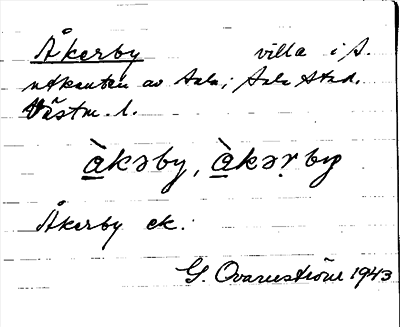 Åkerby villa i s.
utkanten av Sala, Sala stad.
Västm. l.
à̱kəby, à̱kəṛby
Åkerby ek.
G. Ovarnström 1943